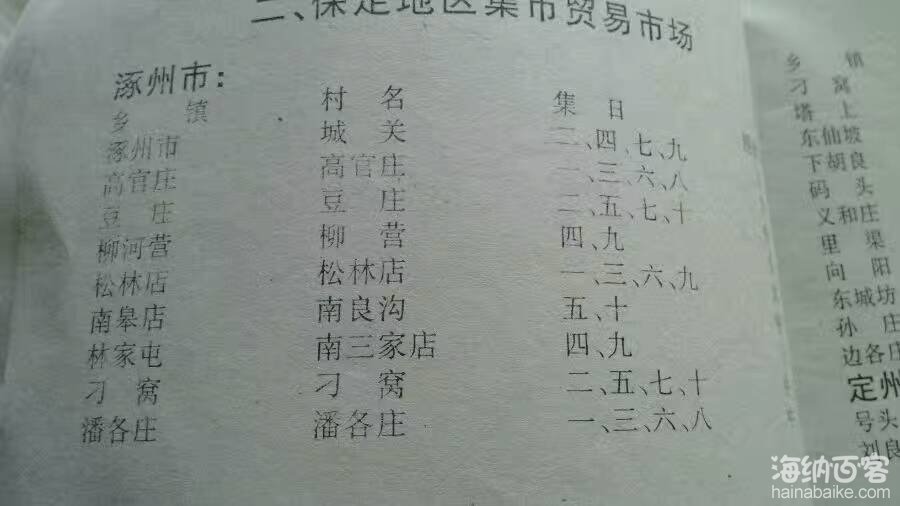 二、保定地区集市贸易市场
涿州市：
乡 镇 村 名 集 日
涿州市 城 关 二、四、七、九
高官庄 高官庄 一、三、六、八
豆 庄 豆 庄 二、五、七、十
柳河营 柳 营 四、九
松林店 松林店 一、三、六、九
南皋店 南良沟 五、十
林家屯 南三家店 四、九
刁 窝 刁 窝 二、五、七、十
潘各庄 潘各庄 一、三、六、八
乡 镇
刁 窝
塔 上
东仙坡
下胡良
码 头
义和庄
里 渠
向 阳
东城坊
孙 庄
边各庄
定州
号头
刘良
海纳百客
hainabaike.com